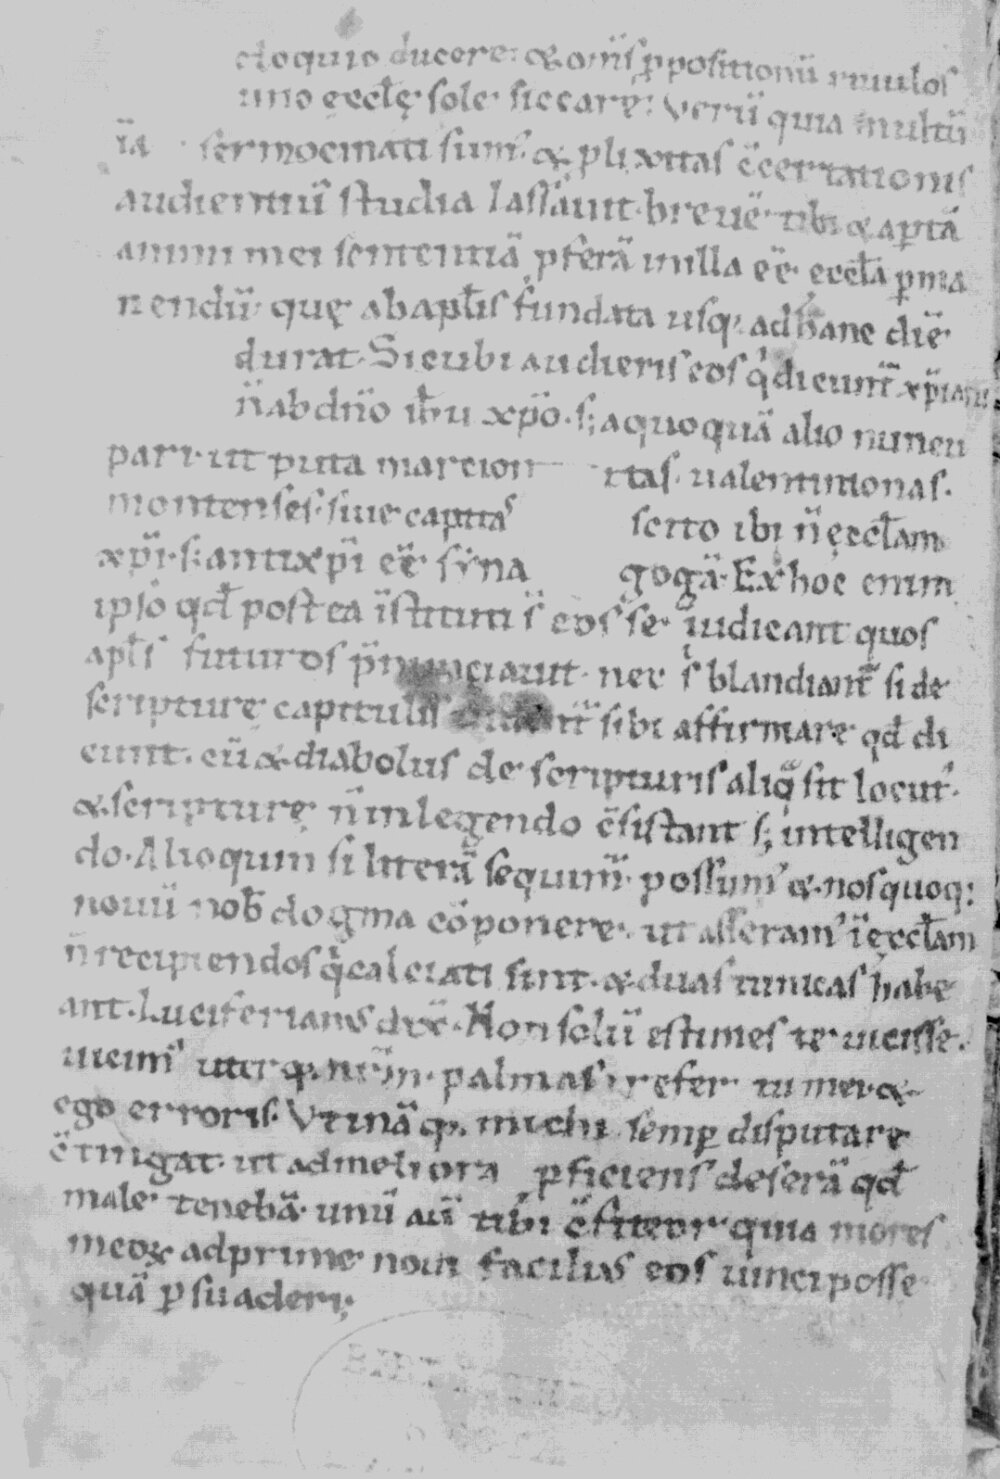 eloquio ducere: & om̄s ꝓpositionū riuulos
uno eccłę sole siccare: Verū quia multū
iā sermocinati sum᾽ & ꝓlixitas c̄certationis
audientiū studia lassauit. breuē tibi & aptā
animi mei sententiā ꝓferā in illa eē ecclā ꝑma
nendū quę ab apłis fundata usq; ad hanc diē
durat. Sicubi audieris eos q̇ dicunt᾽ xp̄iani
n̄ ab dn̄o ih̄u xp̄o. s; a quoquā alio nuncu
pari ut puta marcion itas. ualentinionas.
montenses. siue capitas scito ibi n̄ ęccłam
xp̄i. s; antixp̄i eē syna gogā. Ex hoc enim
ipso qđ postea īstituti s̄ eos se iudicant quos
apłs futuros p̄nunciauit. nec s̄ blandiant᾽ si de
scripturę capitulis sibi affirmare qđ di
cunt. cū & diabolus de scripturis aliq̇ sit locut᾽.
& scripturę n̄ in legendo c̄sistant s; intelligen
do. Alioquin si literā sequim᾽ possum᾽ & nos quoq;
nouū nob̄ dogma cōponere. ut asseram᾽ ī ęccłam
n̄ recipiendos q̇ calciati sint. & duas tunicas habe
ant. Luciferianus dix̄. Non solū estimes te uicisse.
uicim᾽ uterq; nr̄m. palmas refer tu mei &
ego erroris. Vtinā q; michi semꝑ disputare
c̄tingat. ut ad meliora ꝓficiens deserā qđ
male tenebā. unū aū tibi c̄fiteor quia mores
meoꝝ adprime noui facilius eos uinci posse
quā ꝑsuaderi;